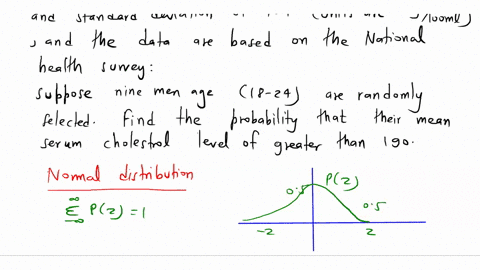 and standard deviation of
, and the data are based on the National
health survey:
suppose nine men age (18-24) are randomly
selected. Find the probability that their mean
serum cholestrol level of greater than 190.
Normal distribution
∞
Σ P(z) = 1
-∞
P(z)
0.5
0.5
-2
2